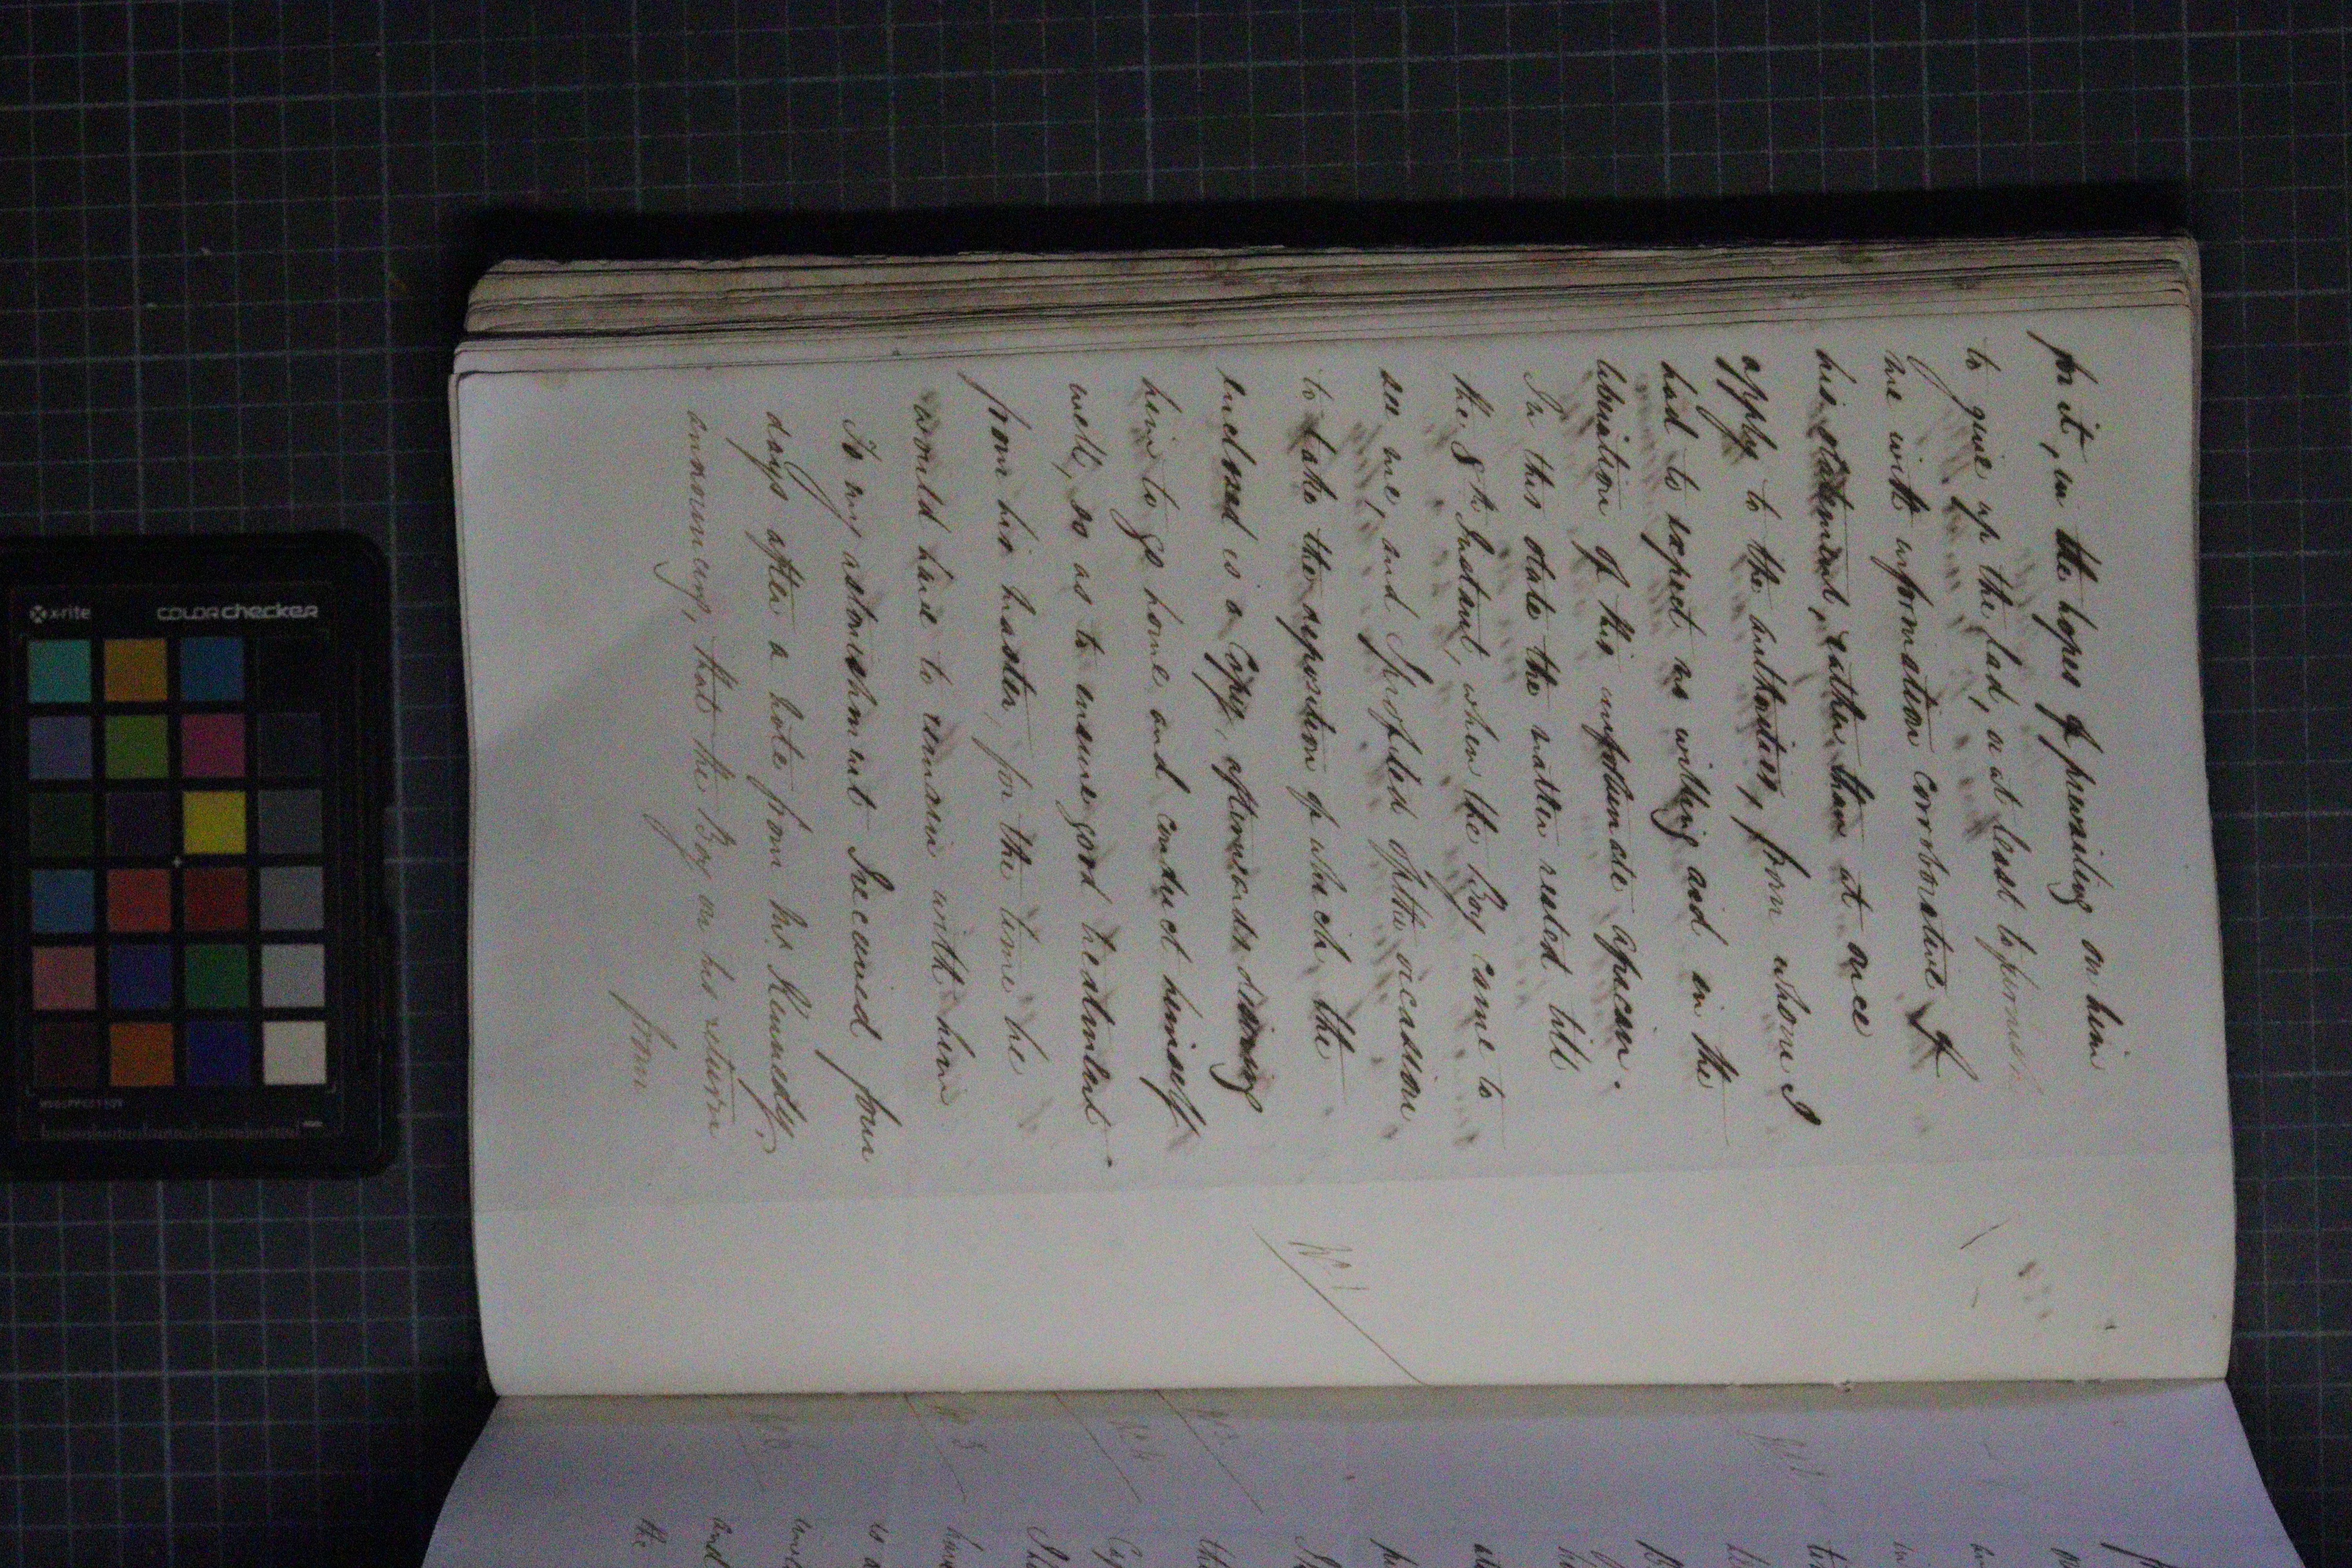 for it, in the hopes of prevailing on him
to give up the lad, or at least to furnish
me with information corroborative of
his statement, rather than at once
apply to the authorities, from whom I
had to expect no willing aid in the
liberation of this unfortunate African.
In this state the matter rested till
the 8th Instant, when the Boy came to
see me, and I profited of the occasion
to take the deposition of which the
Inclosed is a Copy, afterwards desiring
him to go home and conduct himself
well, so as to ensure good treatment
from his master, for the time he
would have to remain with him
To my astonishment I received four
days after a note from Mr. Kennedy,
announcing, that the Boy on his return
from
No 1
x-rite
colorchecker
the
and